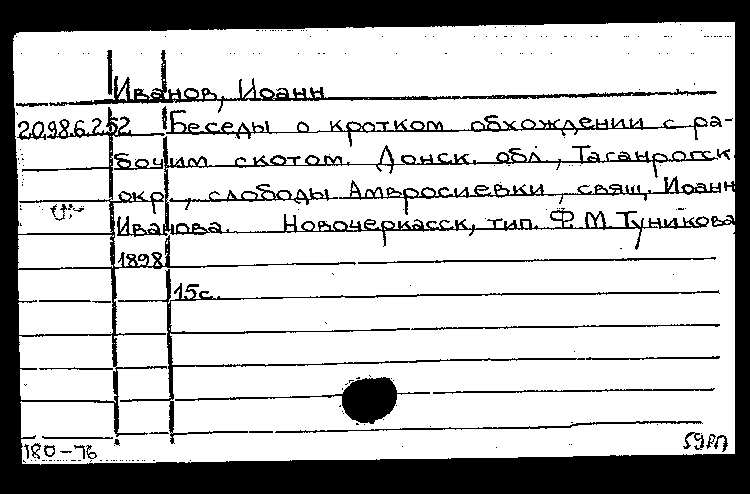 Иванов, Иоанн
20.98.6.252 Беседы о кротком обхождении с ра-
бочим скотом. Донск. обл., Таганрогск.
окр., слободы Амвросиевки, свящ. Иоанн
Иванова. Новочеркасск, тип. Ф.М. Туникова
1898
15с.
180-76